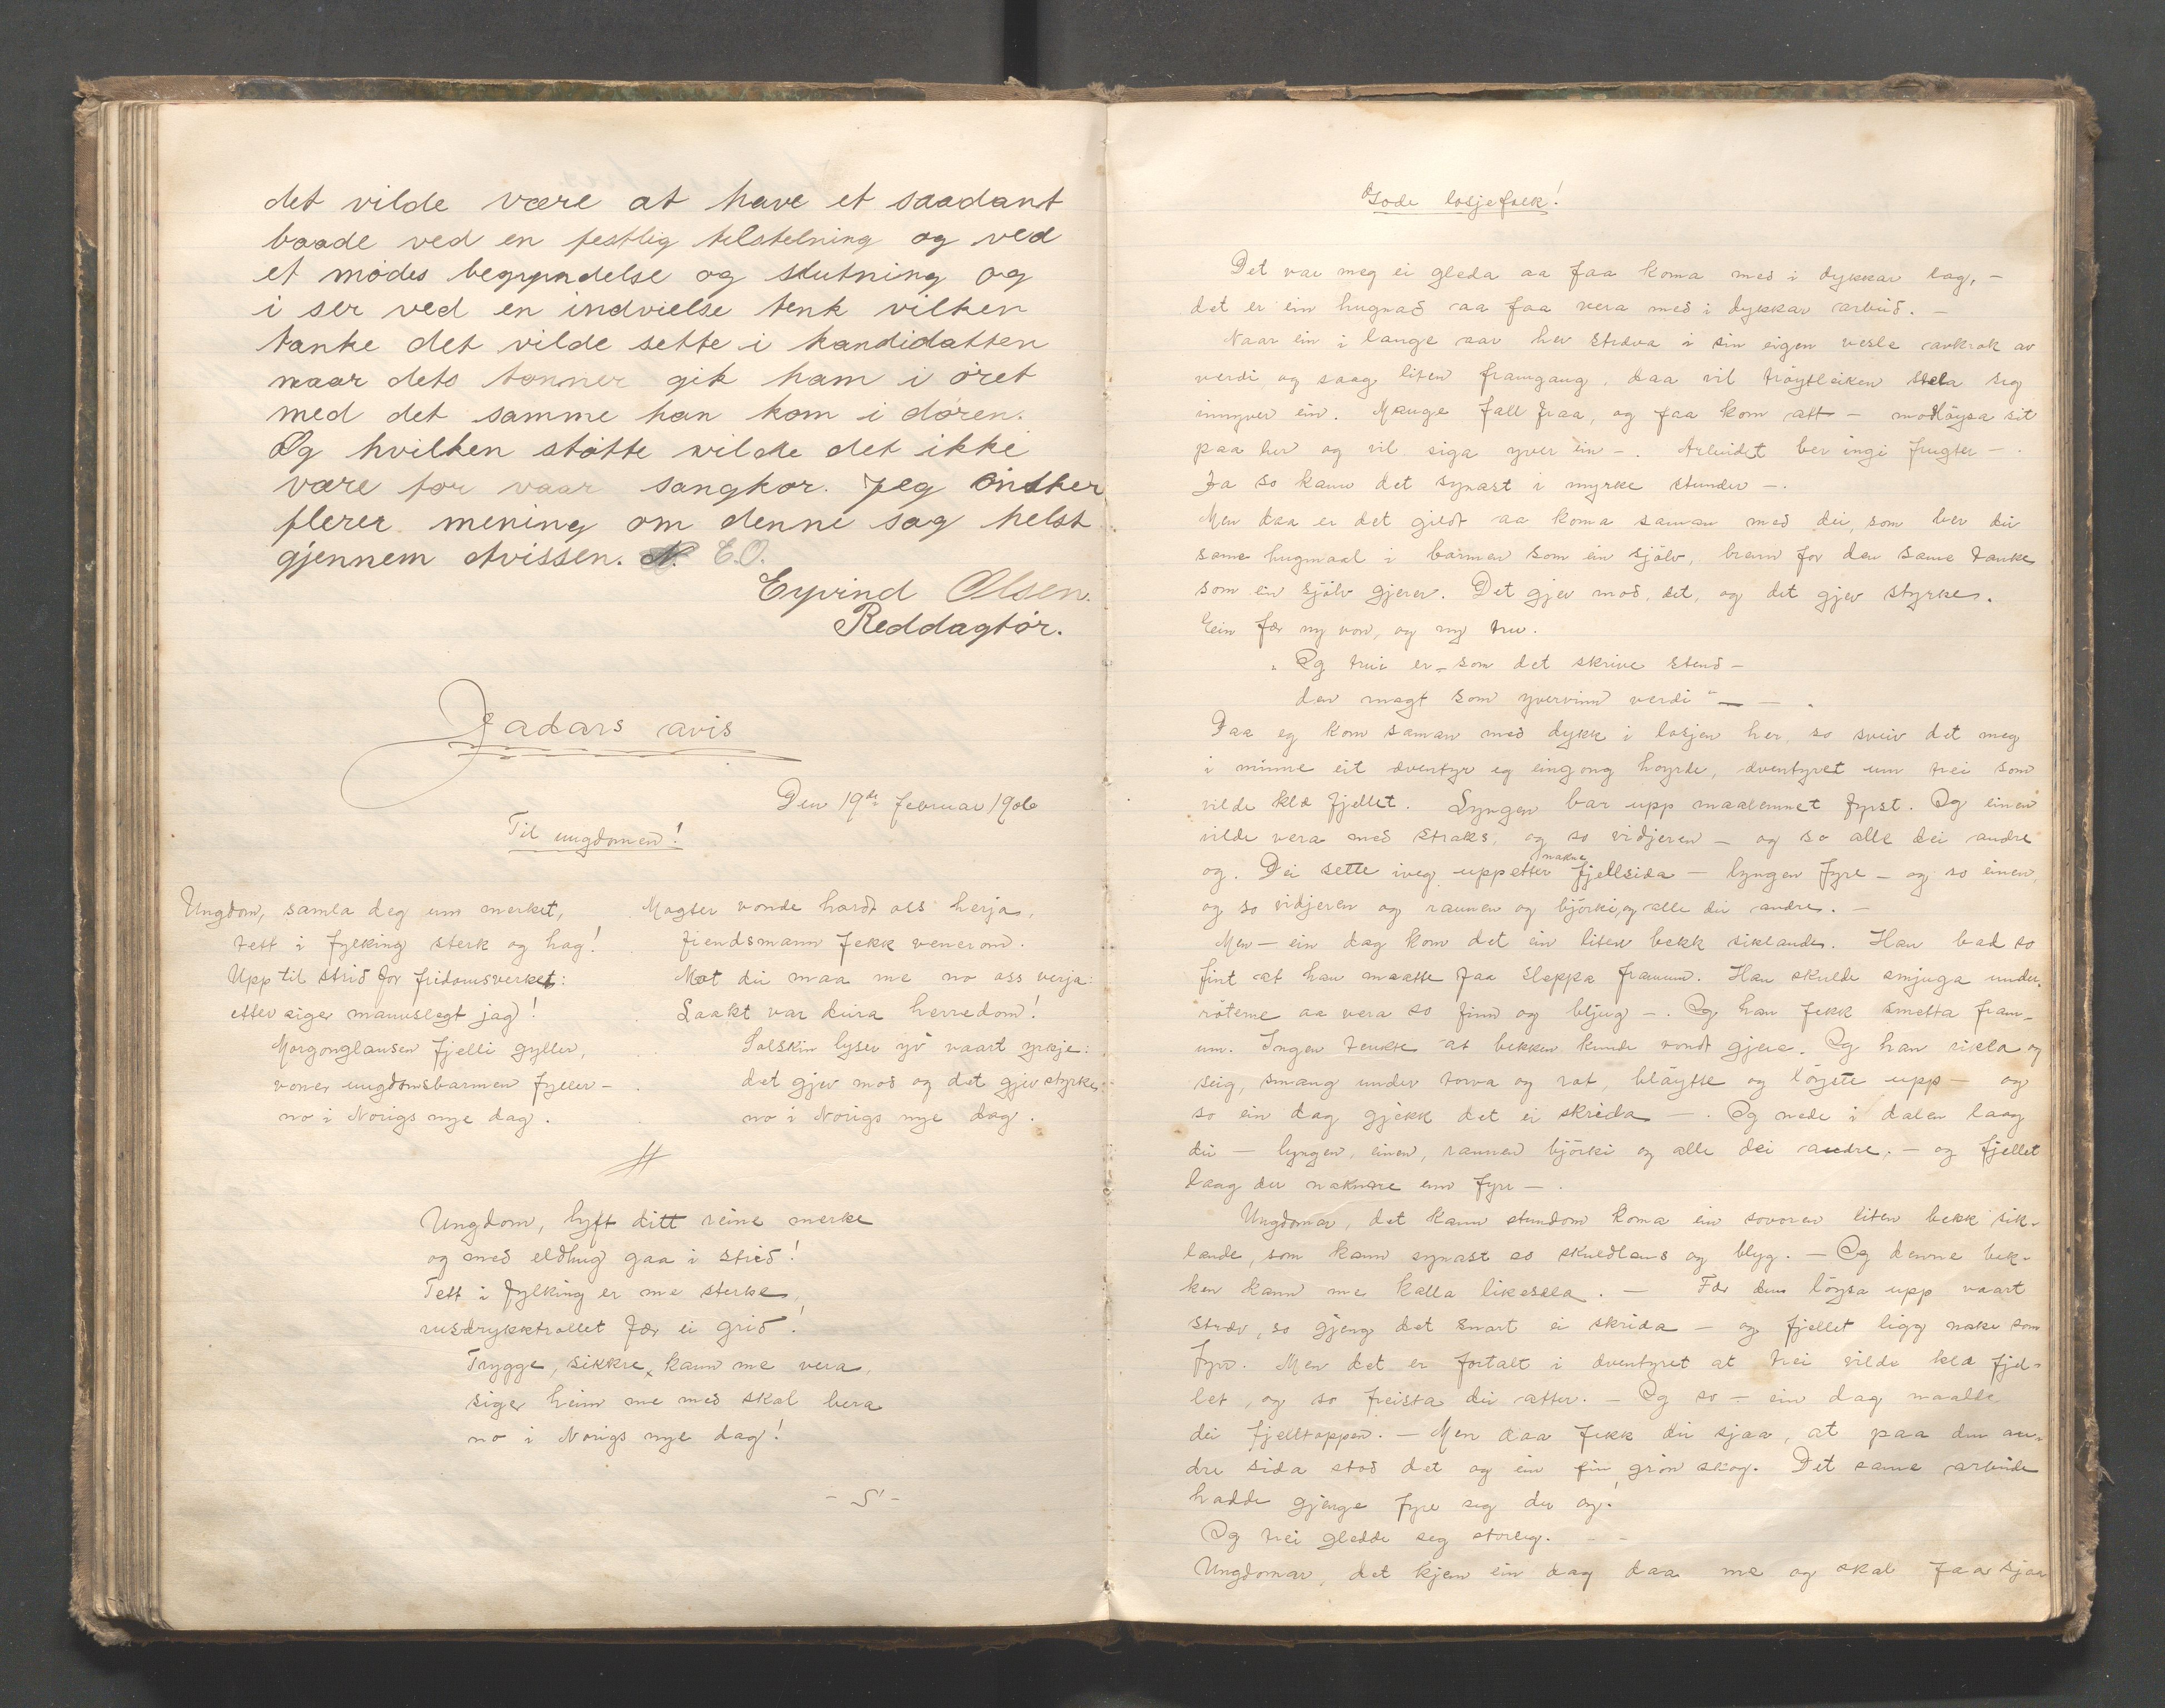 det vilde være at have et saadant
baade ved en festlig tilstelning og ved
et mødes begyndelse og slutning og
i ser ved en indvielse tenk vilken
tanke det vilde sette i kandidatten
naar dets tonner gik ham i øret
med det samme han kom i døren.
Og hvilken støtte vilde det ikke
være for vaar sangkor. Jeg ønsker
flerer mening om denne sag helst
gjennem Avissen. E.O.
Eyvind Olsen.
Reddagtør.
Jadars avis
Den 19de februar 1906
Til ungdomen!
Ungdom, samla deg um merket,
tett i fylking sterk og hag!
Upp til strid for fridomsverket:
etter eiger mannslegt jag!
Morgonglansen fjelli gyller,
voner ungdomsbarmen fyller –
no i Norigs nye dag.
Magter vonde hardt oss herja,
fiendsmann fekk venerom.
Mot dei maa me no oss verja:
Laakt var deira herredom!
Solskin lyser yv vaart yrkje:
det gjev mod og det gjev styrke:
no i Norigs nye dag.
Ungdom, lyft ditt reine merke
og med eldhug gaa i strid!
Tett i fylking er me sterke,
rusdrykktrollet fær ei grid!
Trygge, sikkre, kann me vera,
siger heim me med skal bera
no i Norigs nye dag!
– S –
Gode losjefolk!
Det var meg ei gleda aa faa koma med i dykkar lag, –
det er ein hugnad aa faa vera med i dykkar arbeid. –
Naar ein i lange aar hev stræva i sin eigen vesle avkrok av
verdi og saag liten framgang, daa vil trøytleiken stela seg
innyver ein. Mange fall fraa, og faa kom att – modløysa sit
paa lur og vil siga yver ein –. Arbeidet ber ingi frugter –.
Ja so kann det synast i myrke stunder –.
Men daa er det gildt aa koma saman med dei, som ber dei
same hugmaal i barmen som ein sjølv, brenn for den same tanke
som ein sjølv gjerer. Det gjev mod, det, og det gjev styrke.
Ein fær ny von, og ny tru.
„Og trui er – som det skrive stend –
den magt som yvervinn verdi“ – –.
Daa eg kom saman med dykk i losjen her, so sveiv det meg
i minne eit æventyr eg eingong høyrde, æventyret um trei som
vilde klæ fjellet. Lyngen bar upp maalemnet fyrst. Og einen
vilde vera med straks, og so vidjeren – og so alle dei andre
og. Dei sette iveg uppetter nakne fjellsida – lyngen fyre – og so einen,
og so vidjeren og raunen og bjørki, og alle dei andre. –
Men – ein dag kom det ein liten bekk siklande. Han bad so
fint at han maatte faa sleppa framum. Han skulde smjuga under
røterne aa vera so finn og bljug –. Og han fekk smetta fram-
um. Ingen tenkte at bekken kunde vondt gjera. Og han sikla og
seig, smaug under torva og rot, bløytte og løyste upp – og
so ein dag gjekk det ei skrida –. Og nede i dalen laag
dei – lyngen, einen, raunen bjørki og alle dei andre, – og fjellet
laag der naknare enn fyre –.
Ungdomar, det kann stundom koma ein sovoren liten bekk sik-
lande, som kann synast so skuldlaus og blyg. – Og denne bek-
ken kann me kalla likesæla. – Fær den løysa upp vaart
stræv, so gjeng det snart ei skrida – og fjellet ligg nake som
fyre. Men det er fortalt i æventyret at trei vilde klæ fjel-
let, og so freista dei atter. – Og so – ein dag maalte
dei fjelltoppen. – Men daa fekk dei sjaa, at paa den an-
dre sida stod det og ein fin grøn skog. Det same arbeide
hadde gjenge fyre seg der og!
Og trei gledde seg storleg. –
Ungdomar, det kjem ein dag daa me og skal faa sjaa